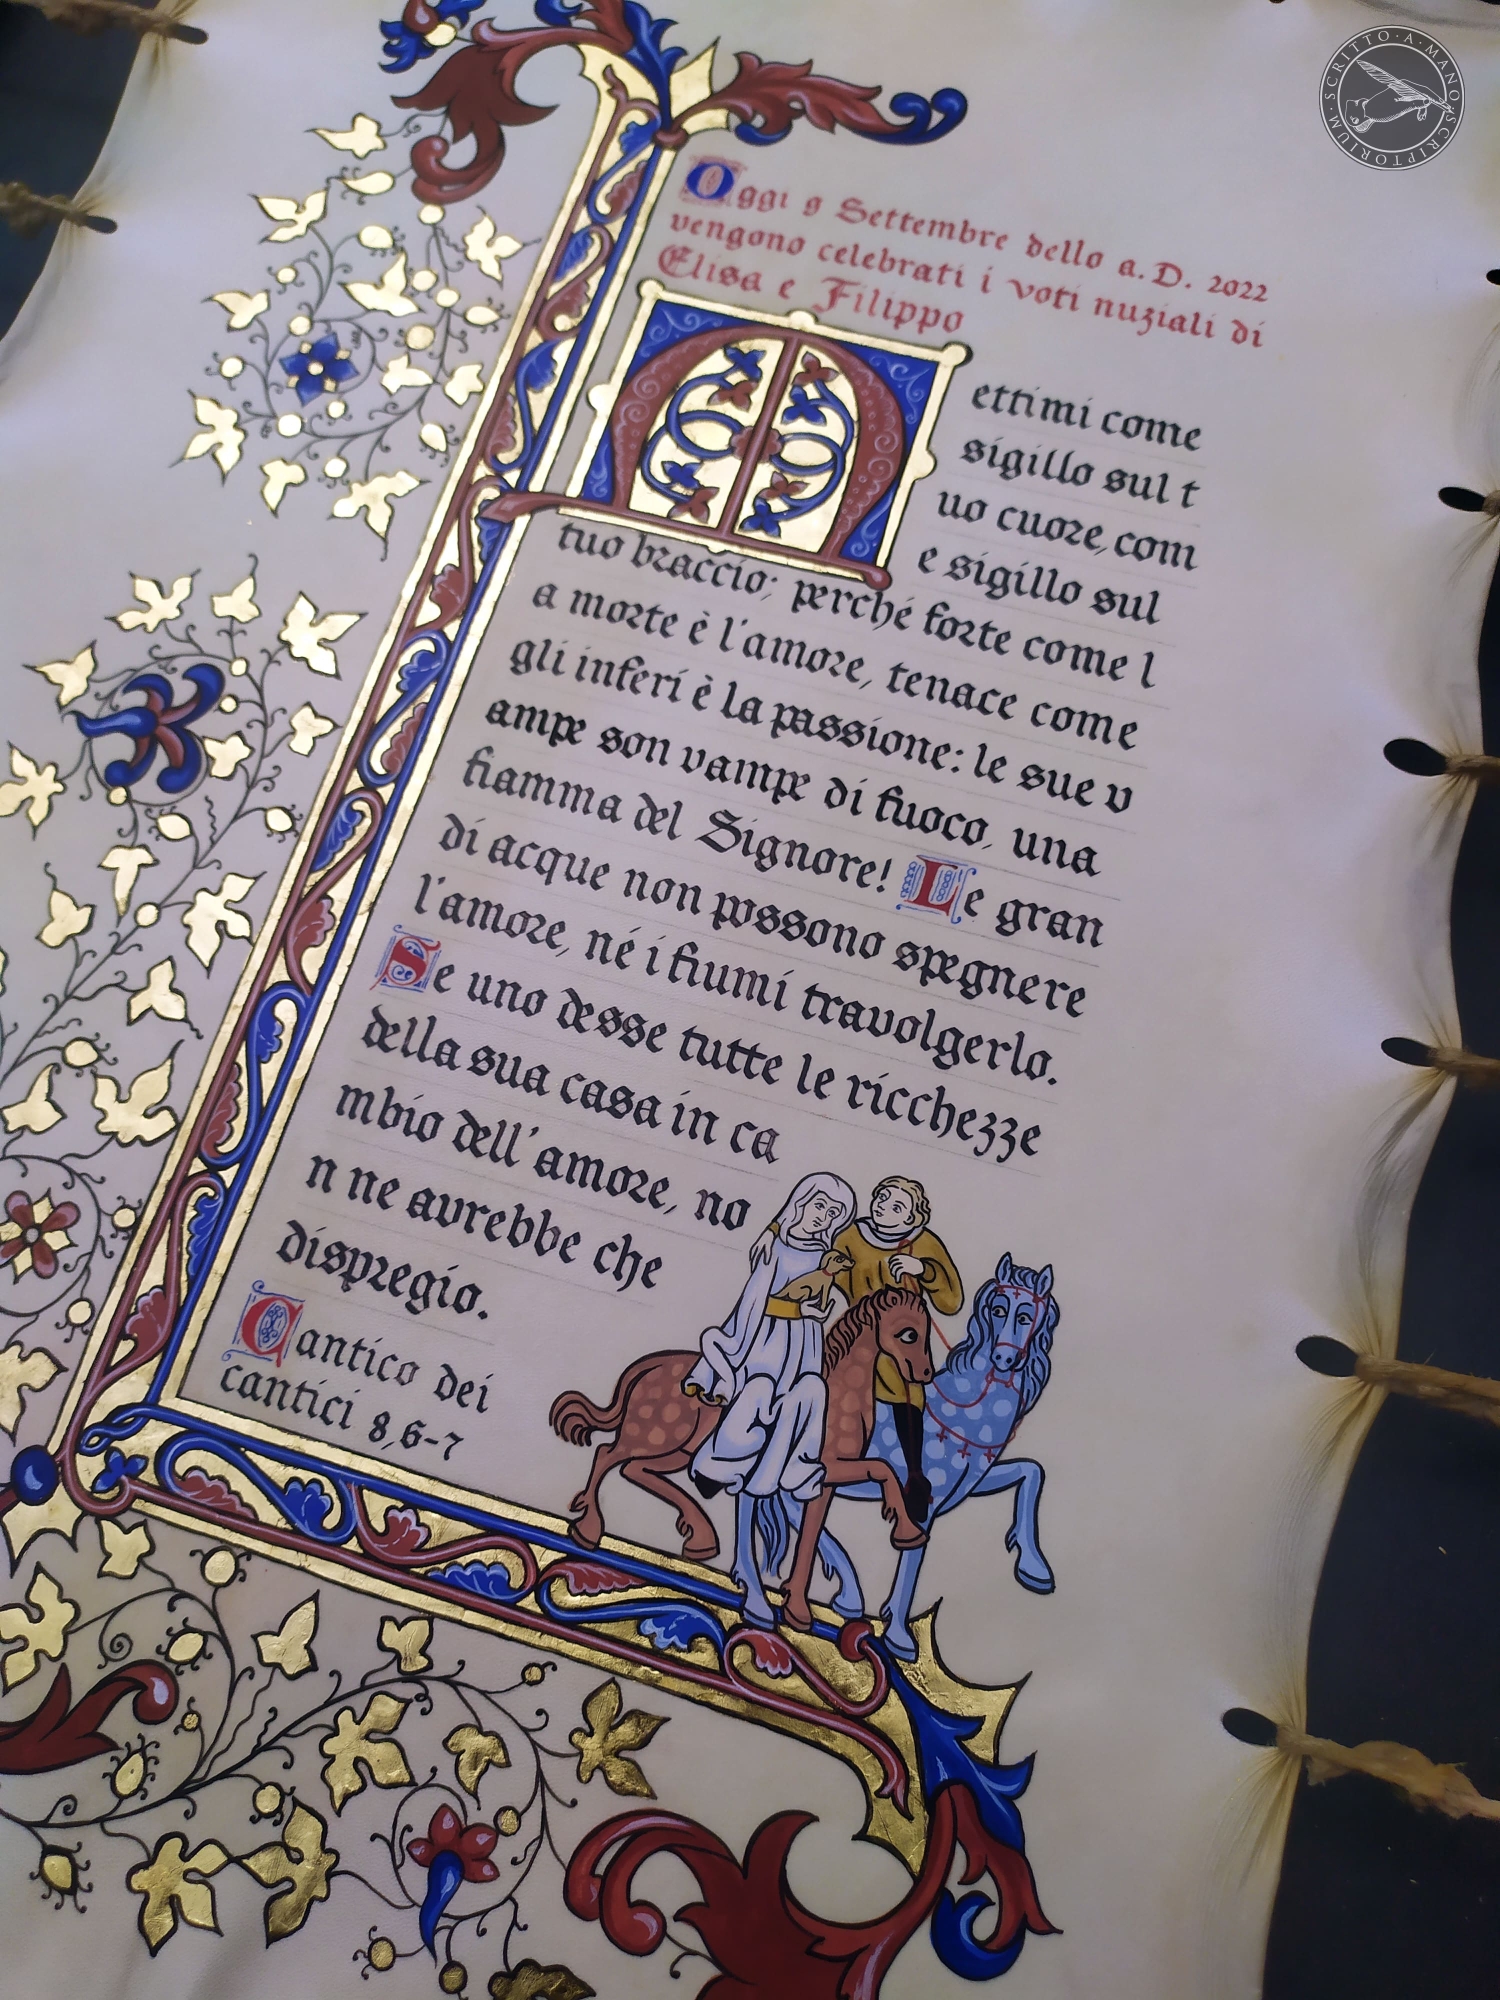 SCRITTO·A·MANO SCRIPTORIUM
Oggi 9 Settembre dello a.D. 2022
vengono celebrati i voti nuziali di
Elisa e Filippo
Mettimi come
sigillo sul t
uo cuore, com
e sigillo sul
tuo braccio; perché forte come l
a morte è l'amore, tenace come
gli inferi è la passione: le sue v
ampe son vampe di fuoco, una
fiamma del Signore! Le gran
di acque non possono spegnere
l'amore, né i fiumi travolgerlo.
Se uno desse tutte le ricchezze
della sua casa in ca
mbio dell'amore, no
n ne avrebbe che
dispregio.
Cantico dei
cantici 8,6-7